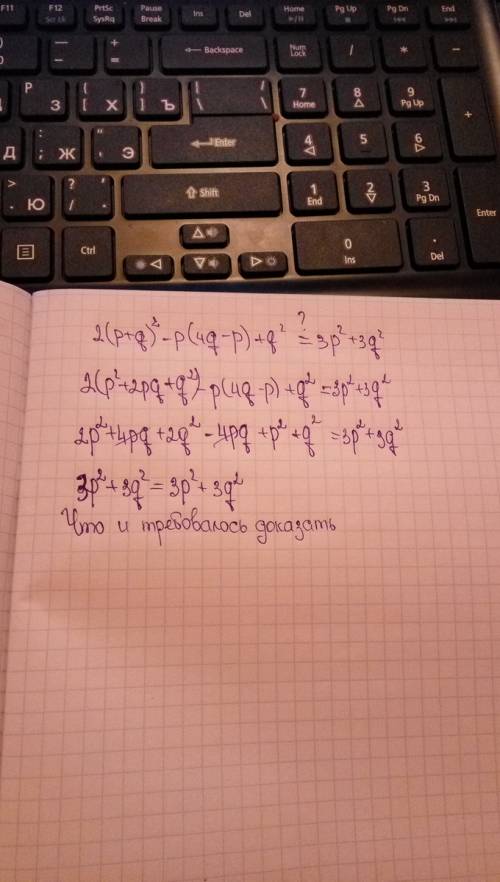 F11 F12 PrtSc Pause Ins Del Home Pg Up Pg Dn End
Scr Lk SysRq Break
— + Backspace Num Lock / * -
- =
Р З { [ Х } ] Ъ | / \ \ 7 Home 8 9 Pg Up +
Д : ; Ж " ' Э Enter 4 5 6
> . Ю ? / , . Shift 1 End 2 3 Pg Dn Enter
Ctrl 0 Ins . Del
2(p+q)² - p(4q-p)+q² ?= 3p²+3q²
2(p²+2pq+q²) - p(4q-p)+q² = 3p²+3q²
2p²+4pq+2q² - 4pq+p²+q² = 3p²+3q²
3p²+3q² = 3p²+3q²
Что и требовалось доказать